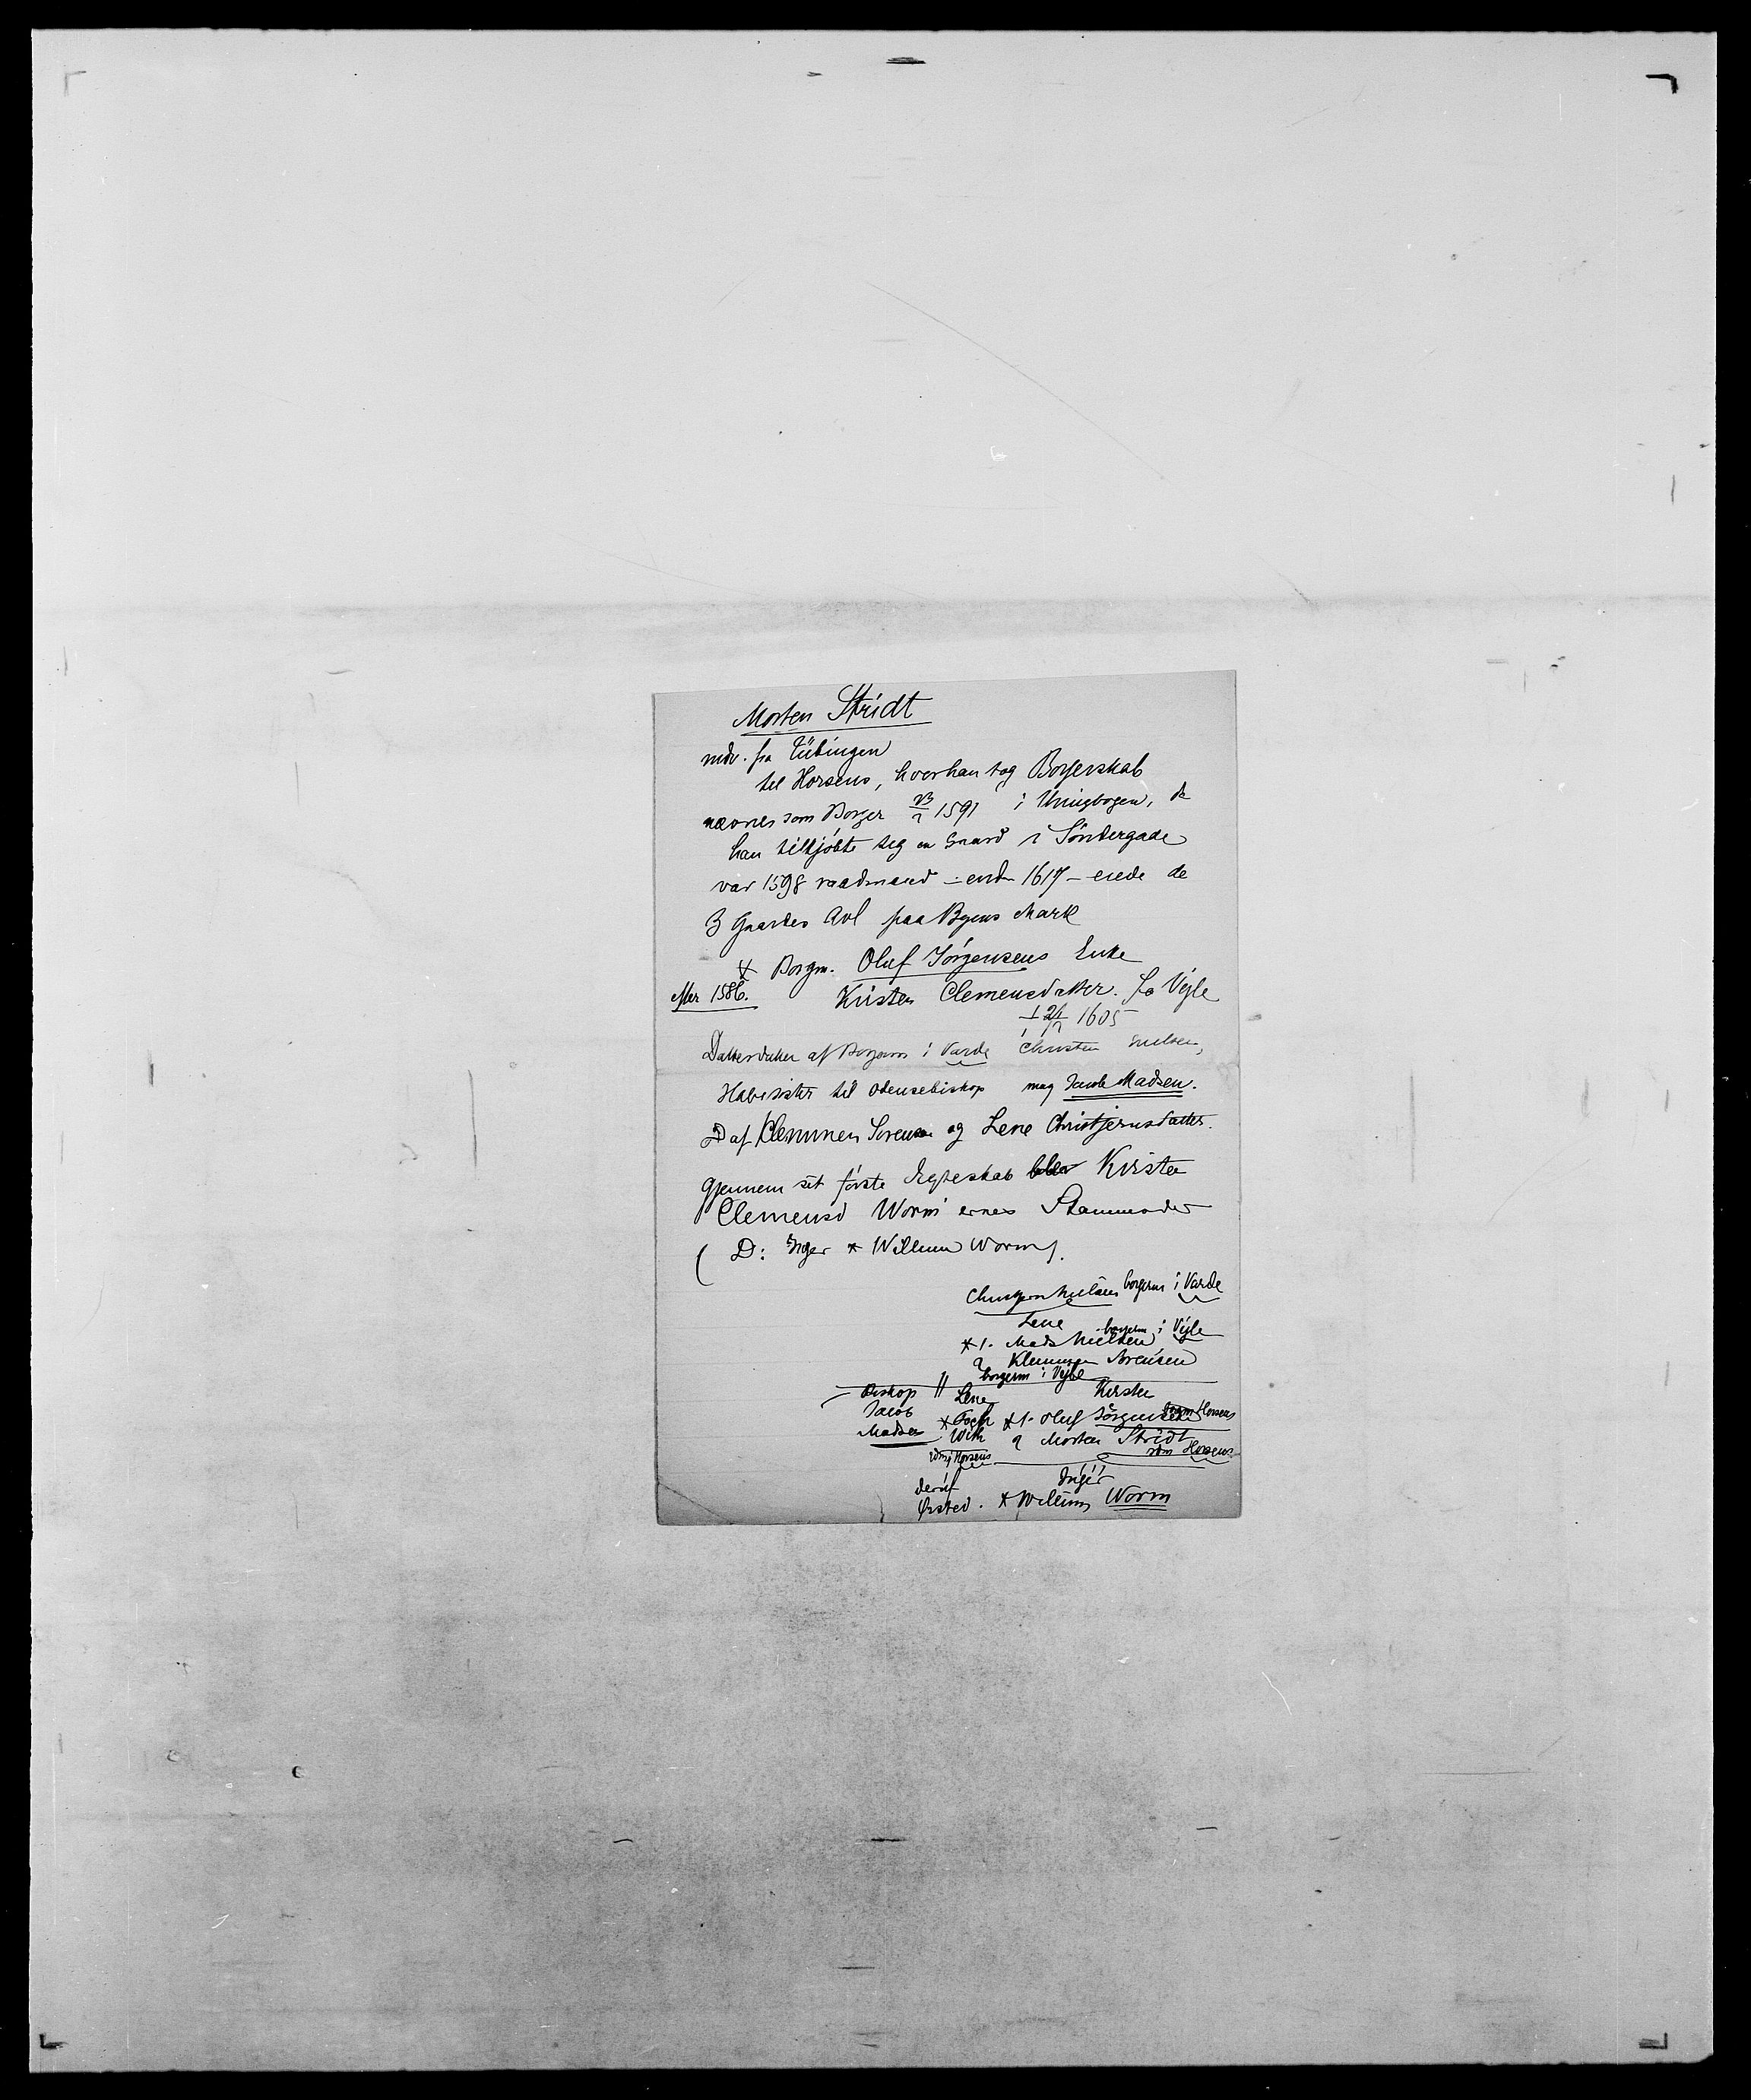 Morten Stridt
indv. fra Tübingen
til Horsens, hvor han tog Borgerskab
nævnes som Borger 23/2 1591 i Thingbogen, da
han tilkjøbte sig en Gaard i Søndergade
var 1598 raadmand - end 1617 - eiede de
3 Gaardes Avl paa Byens Mark
Borgm. Oluf Jörgensens Enke
efter 1586. Kirsten Clemensdatter. fra Vejle
1605
Datterdatter af Borgerm i Varde Christen Nielsen,
Halvsister til Odensebiskop mag Jacob Madsen.
D af Klemmen Sørensen og Lene Christjernsdatter.
Gjennem sit første Ægteskab blev Kirsten
Clemensd Worm'ernes Stammoder
( D: Inger * Willum Worm).
Christjern Nielsen borgerm i Varde
Lene
*1. Mads Nielsen borgerm i Vejle
2 Klemmen Sørensen
borgerm i Vejle
Biskop Lene Kirsten
Jacob * *1. Oluf Jörgensen Horsens
Madsen With 2 Morten Stridt
rdm i Horsens rdm Horsens
deraf Inger
Ørsted. * Willum Worm